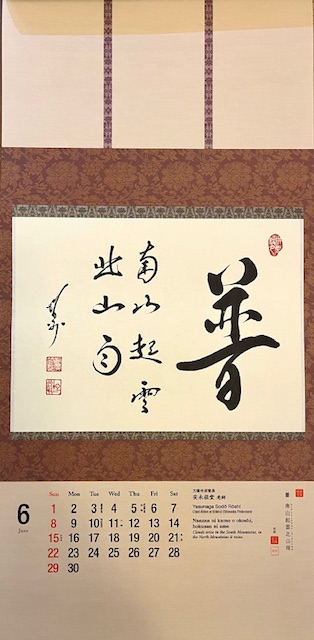 普
南山起雲
北山雨
6
June
Sun Mon Tue Wed Thu Fri Sat
1 2 3 4 5 6 7
8 9 10 11 12 13 14
15 16 17 18 19 20 21
22 23 24 25 26 27 28
29 30
安永祖堂 老師
Yasunaga Sodō Rōshi
Nanzan ni kumo o okoshi,
hokuzan ni ame
Clouds arise in the South Mountains, in
the North Mountains it rains
普 南山起雲北山雨